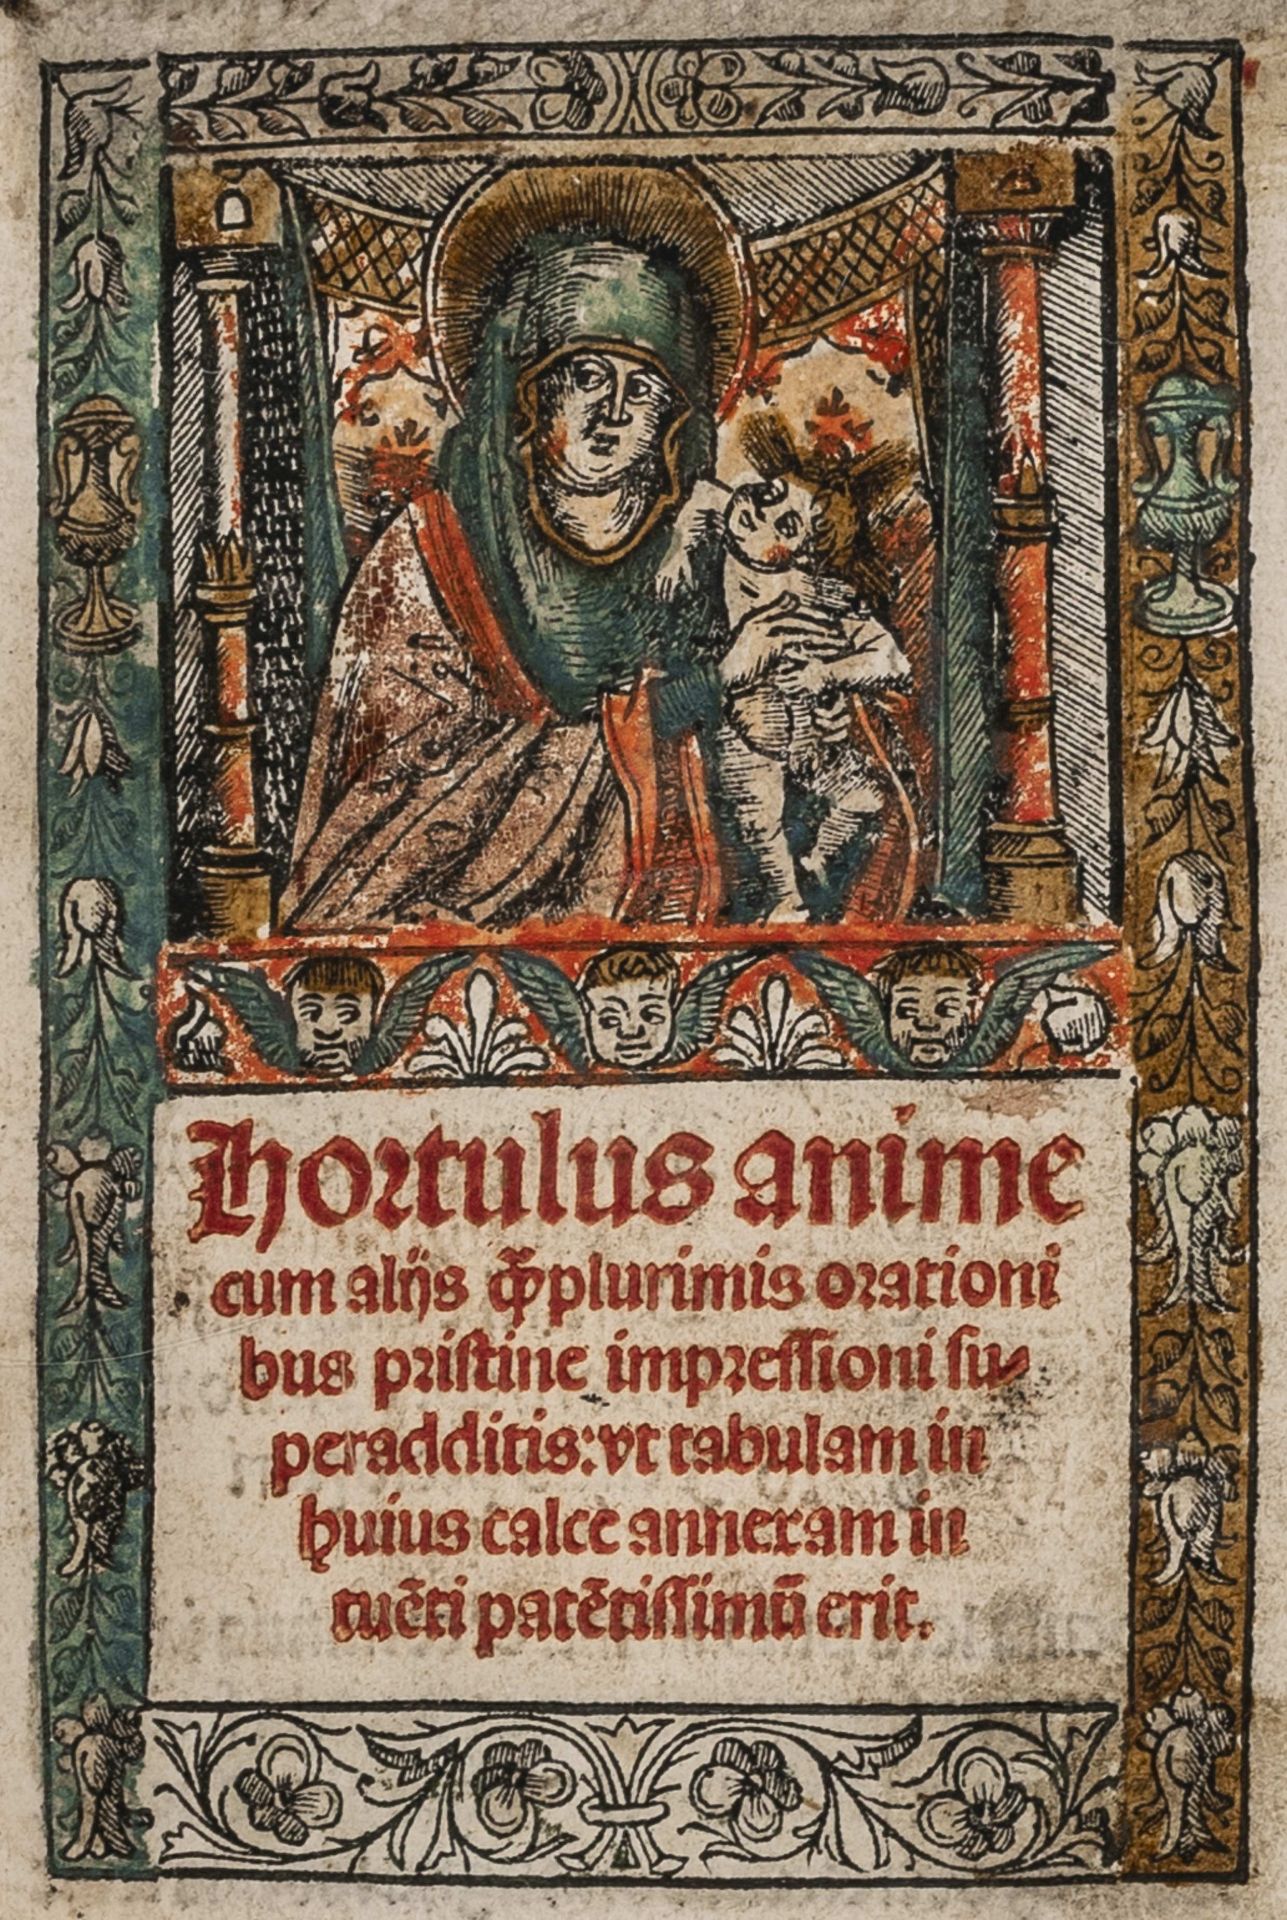 Hortulus anime
cum alijs q̃plurimis orationi
bus pristine impressioni su⸗
peradditis: vt tabulam in
huius calce annexam in
tuẽti patẽtissimũ erit.